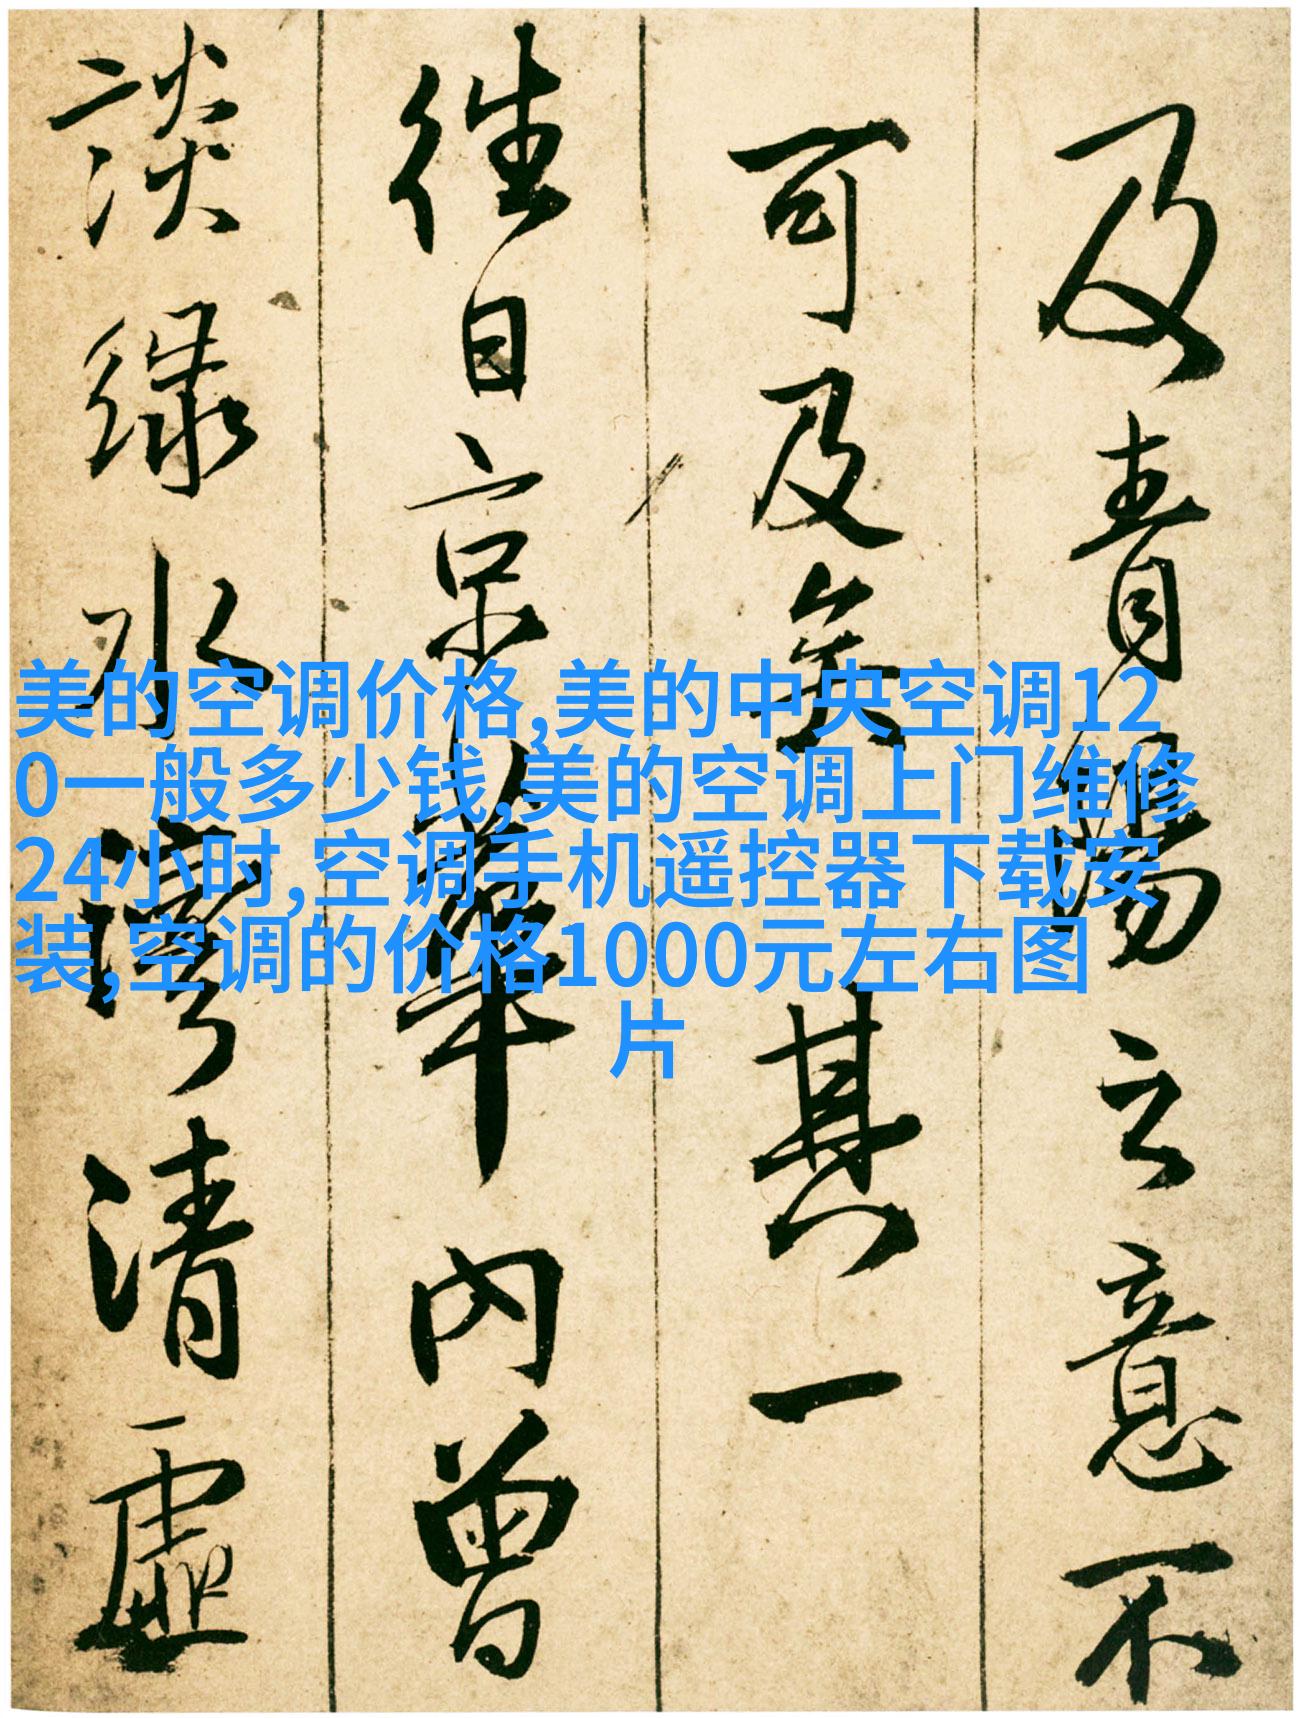 及青陽云意不
可及矣其一
往日京華內曾
談綠水灣清虛
美的空调价格,美的中央空调12
0一般多少钱,美的空调上门维修
24小时,空调手机遥控器下载安
装,空调的价格1000元左右图
片